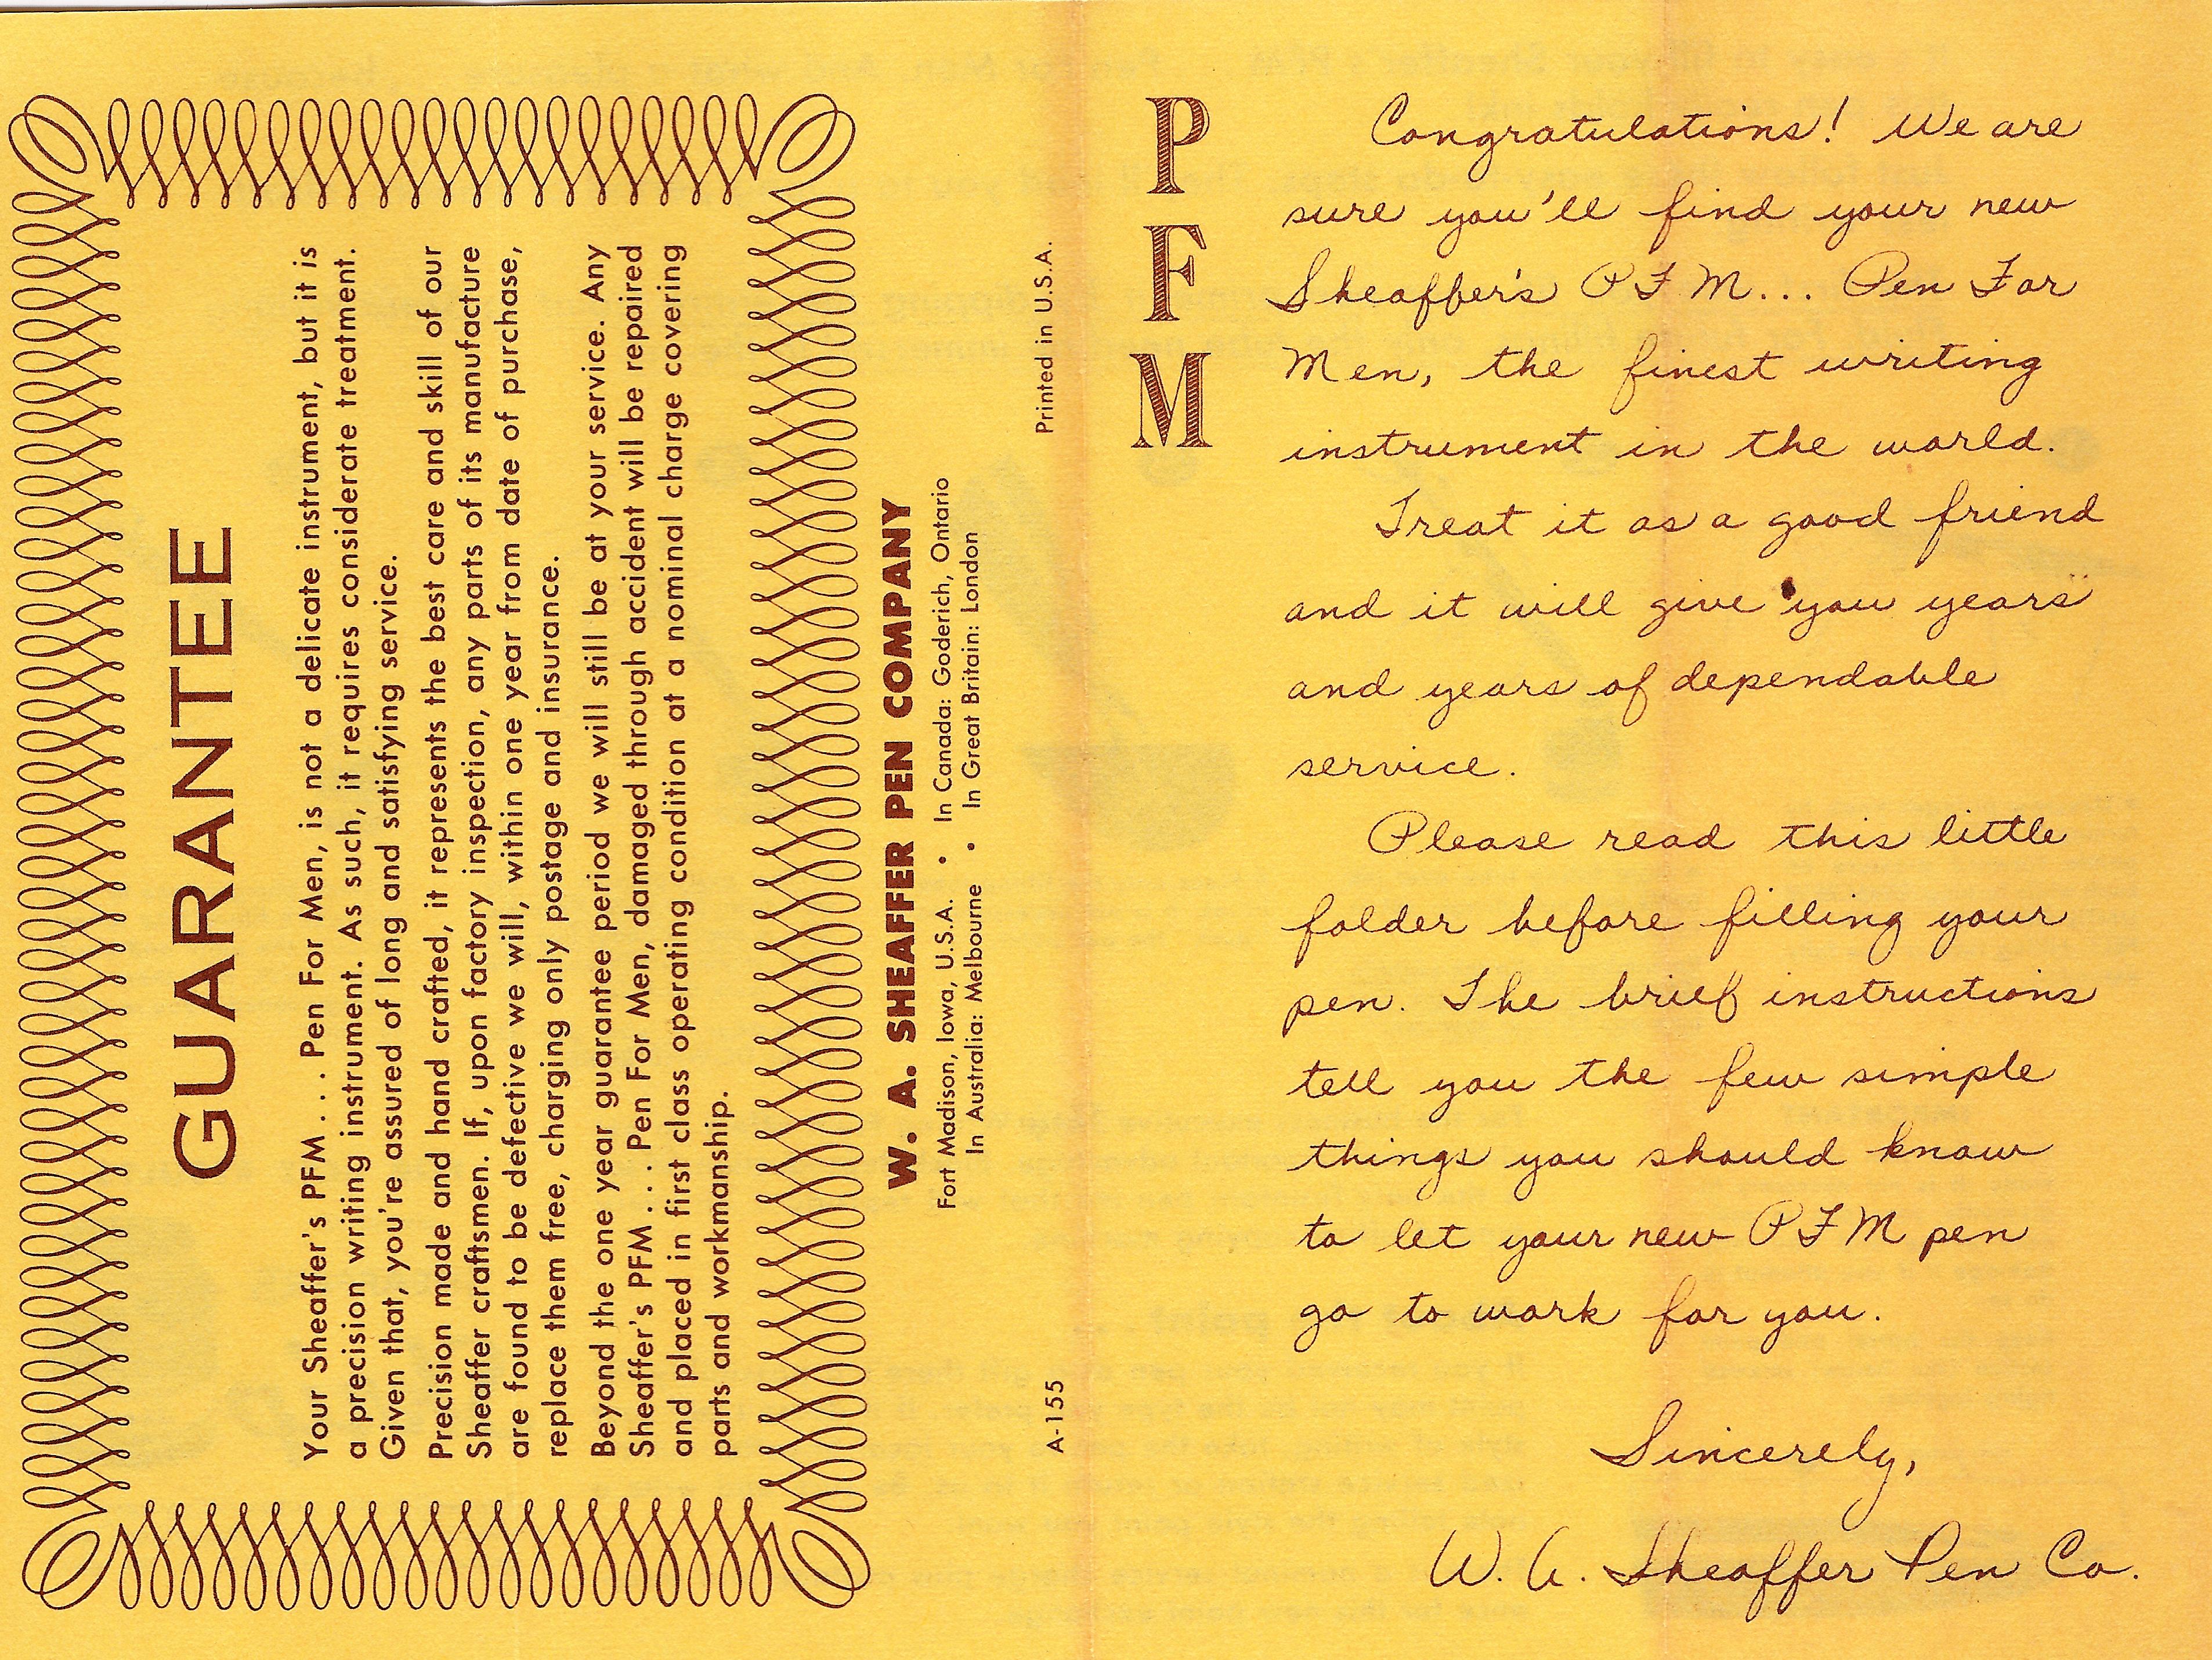 GUARANTEE
Your Sheaffer's PFM . . . Pen For Men, is not a delicate instrument, but it is
a precision writing instrument. As such, it requires considerate treatment.
Given that, you're assured of long and satisfying service.
Precision made and hand crafted, it represents the best care and skill of our
Sheaffer craftsmen. If, upon factory inspection, any parts of its manufacture
are found to be defective we will, within one year from date of purchase,
replace them free, charging only postage and insurance.
Beyond the one year guarantee period we will still be at your service. Any
Sheaffer's PFM . . . Pen For Men, damaged through accident will be repaired
and placed in first class operating condition at a nominal charge covering
parts and workmanship.
W. A. SHEAFFER PEN COMPANY
Fort Madison, Iowa, U.S.A. • In Canada: Goderich, Ontario
In Australia: Melbourne • In Great Britain: London
A-155 Printed in U.S.A.
P
F
M
Congratulations! We are
sure you'll find your new
Sheaffer's PFM... Pen For
Men, the finest writing
instrument in the world.
Treat it as a good friend
and it will give you years
and years of dependable
service.
Please read this little
folder before filling your
pen. The brief instructions
tell you the few simple
things you should know
to let your new PFM pen
go to work for you.
Sincerely,
W. A. Sheaffer Pen Co.